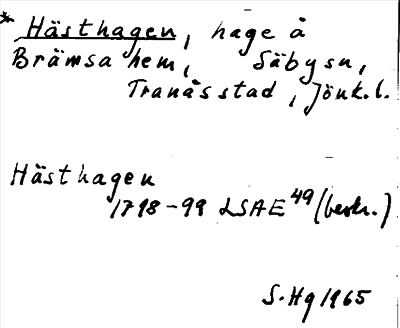 * Hästhagen, hage å
Brämsa hem, Säby sn,
Tranås stad, Jönk. l.
Hästhagen
1798-99 LSAE 49 (beskr.)
S. Hg 1965